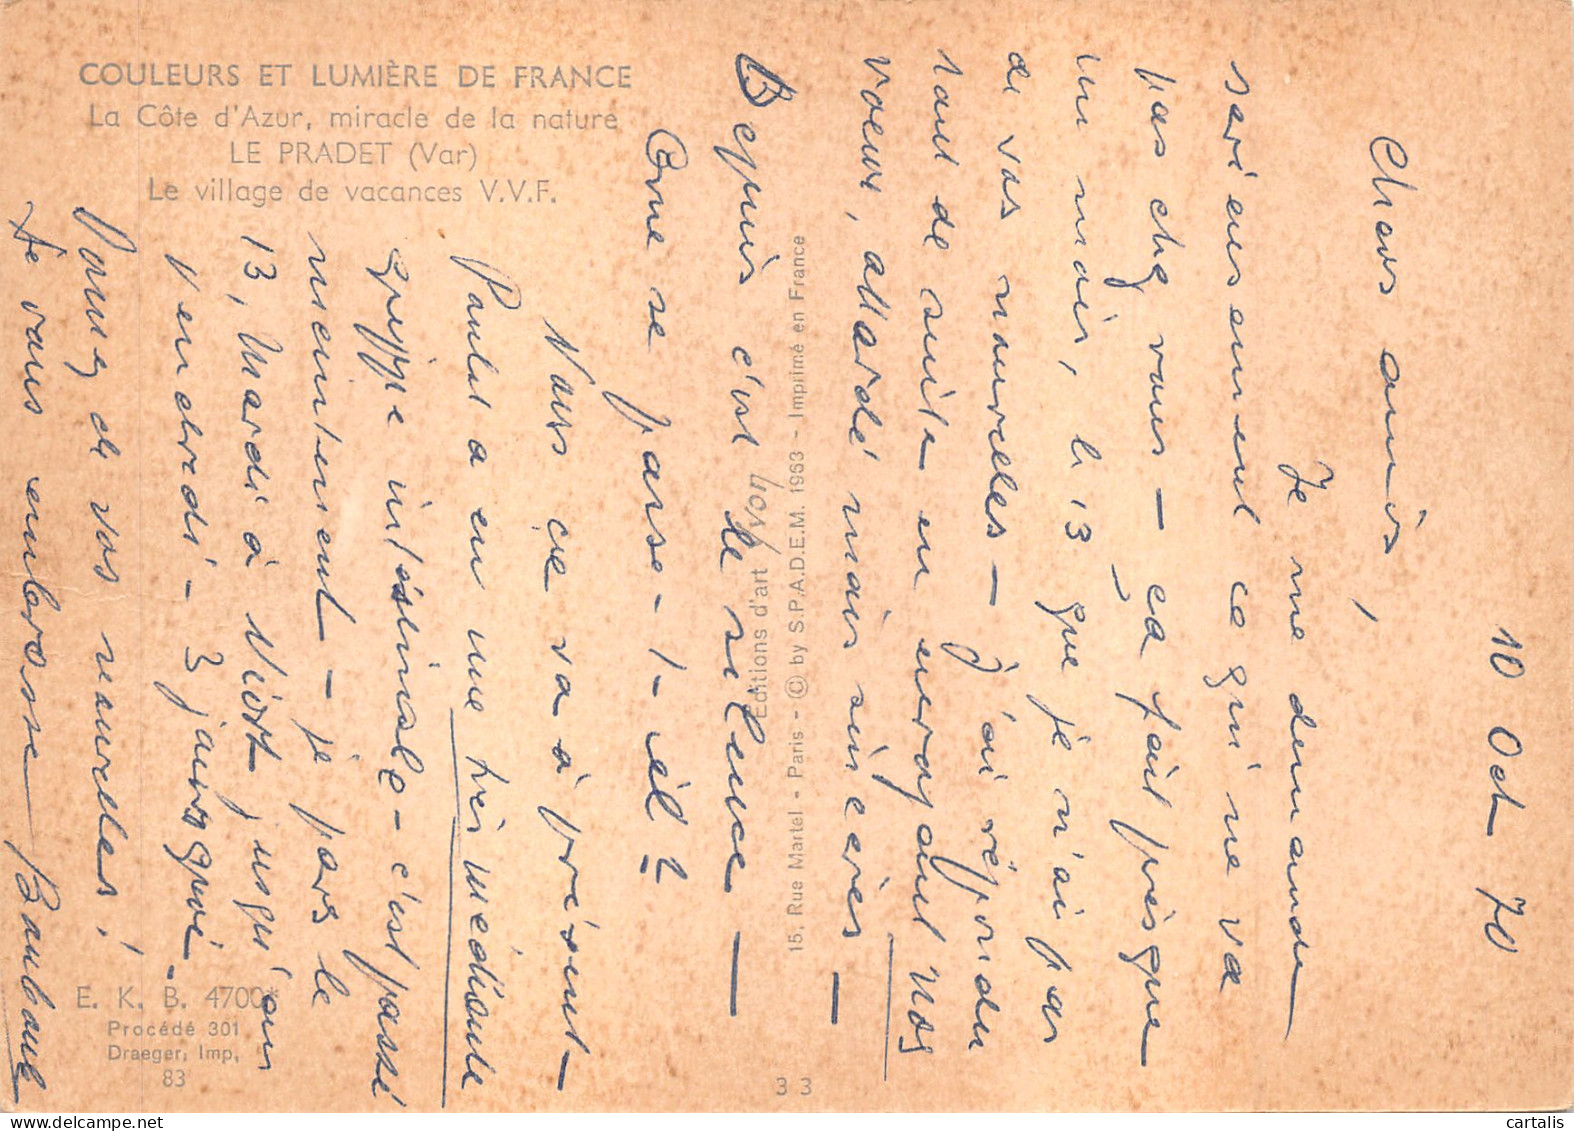 COULEURS ET LUMIÈRE DE FRANCE
La Côte d'Azur, miracle de la nature
LE PRADET (Var)
Le village de vacances V.V.F.
10 Oct 70
Chers amis,
Je me demande
sérieusement ce qui ne va
pas chez vous - ça fait presque
un mois, le 13 que je n'ai pas
de vos nouvelles - J'ai répondu
tout de suite en envoyant nos
voeux, attardé mais sincères -
Depuis c'est le silence -
Que se passe-t-il?
Nous ça va à présent -
Paulet a eu une très méchante
grippe intestinale - c'est passé
maintenant - je pars le
13, Mardi à Niort jusqu'au
vendredi - 3 jours quoi -
Donnez de vos nouvelles!
Je vous embrasse
Editions d'art Yvon
15, Rue Martel - Paris - © by S.P.A.D.E.M. 1963 - Imprimé en France
E. K. B. 4700*
Procédé 301
Draeger, Imp.
83
3 3
cartalis